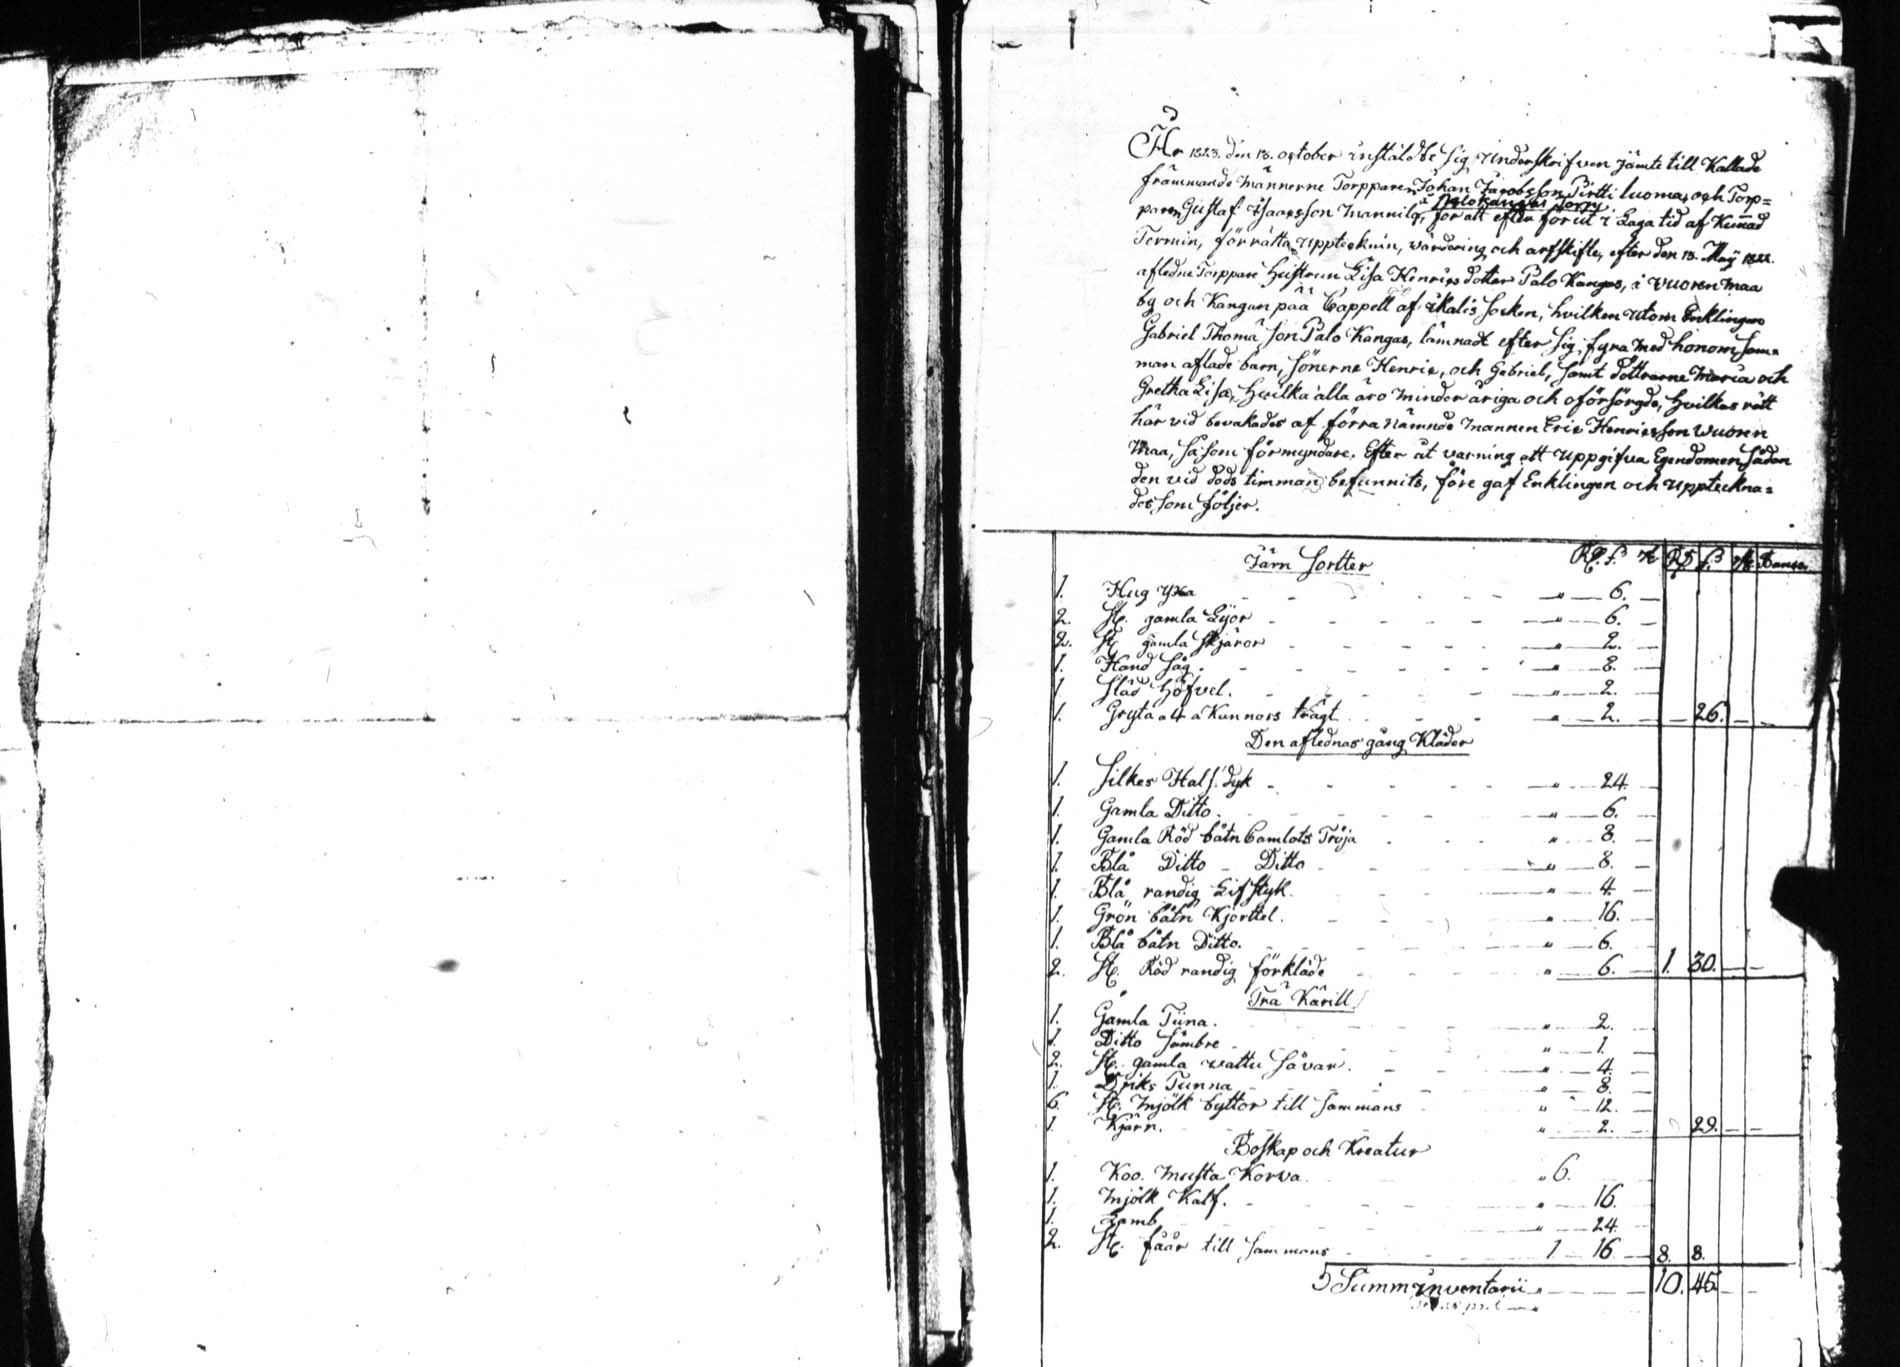 År 1823. den 13. october instäldte sig Underskrifven jämte till Kallade
främmande Männerne Torpparen Johan Jacobsson Pirtti luoma, och Torp=
å Palokangas Torp
paren Gustaf Isaacsson Mannila, för att efter förut i Laga tid af Kunnad
Termin, förrätta Upptecknin, wärdering och arfskifte, efter den 13. Maij 1822.
afledne Torppare Hustrun Lisa Henricsdotter Palo Kangas, i Wuoren maa
by och Kangan pää Cappell af Ikalis Socken, hvilken utom Enklingen
Gabriel Thomä Son Palo Kangas, lämnadt efter sig, fyra med honom sam=
man aflade barn, Sönerne Henric, och Gabriel, samt döttrarne Maria och
Gretha Lisa, hvilka alla äro minder åriga och oförsörgde, hvilkas rätt
här vid bevakades af förra Nämnde mannen Eric Henricsson Wuoren
maa, så som förmyndare. Efter åt varning att uppgifva Egendomen sådan
den vid döds timman befunnits, före gaf Enklingen och Uppteckna=
des, som följer.
Järn Sortter Rd. s. r Rd s. r. Banco.
1. Hug yxa " 6.
2. St. gamla Lijor " 6.
2. St. gamla Skjäror " 2.
1. Hand såg. " 8.
1. Slåd Höfvel. " 2.
1. Gryta a 4 a Kannors trågt " 2. 26.
Den aflednas gång Kläder
1. Silkes Hals dyk " 24.
1. Gamla Ditto. " 6.
1. Gamla Röd båtn Camlots Tröja " 8.
1. Blå Ditto Ditto " 8.
1. Blå randig Lifstyk " 4.
1. Grön båtn Kjorttel. " 16.
1. Blå båtn Ditto. " 6.
2. St. Röd randig förkläde " 6. 1. 30.
Trä Kärill
1. Gamla Tiina. " 2.
1. Ditto Sämbre " 1.
2. St. gamla vattu Såvar. " 4.
1. Driks Tunna " 8.
6. St. Mjölk byttor till sammans " 12.
1. Kjärn. " 2. 29.
Boskap och Kreatur
1. Koo. Musta Korva " 6.
1. Mjölk Kalf. " 16.
1. Lamb " 24.
2. St. fåår till sammans 1 16. 8. 8.
Summ Inventarii " 10. 45.